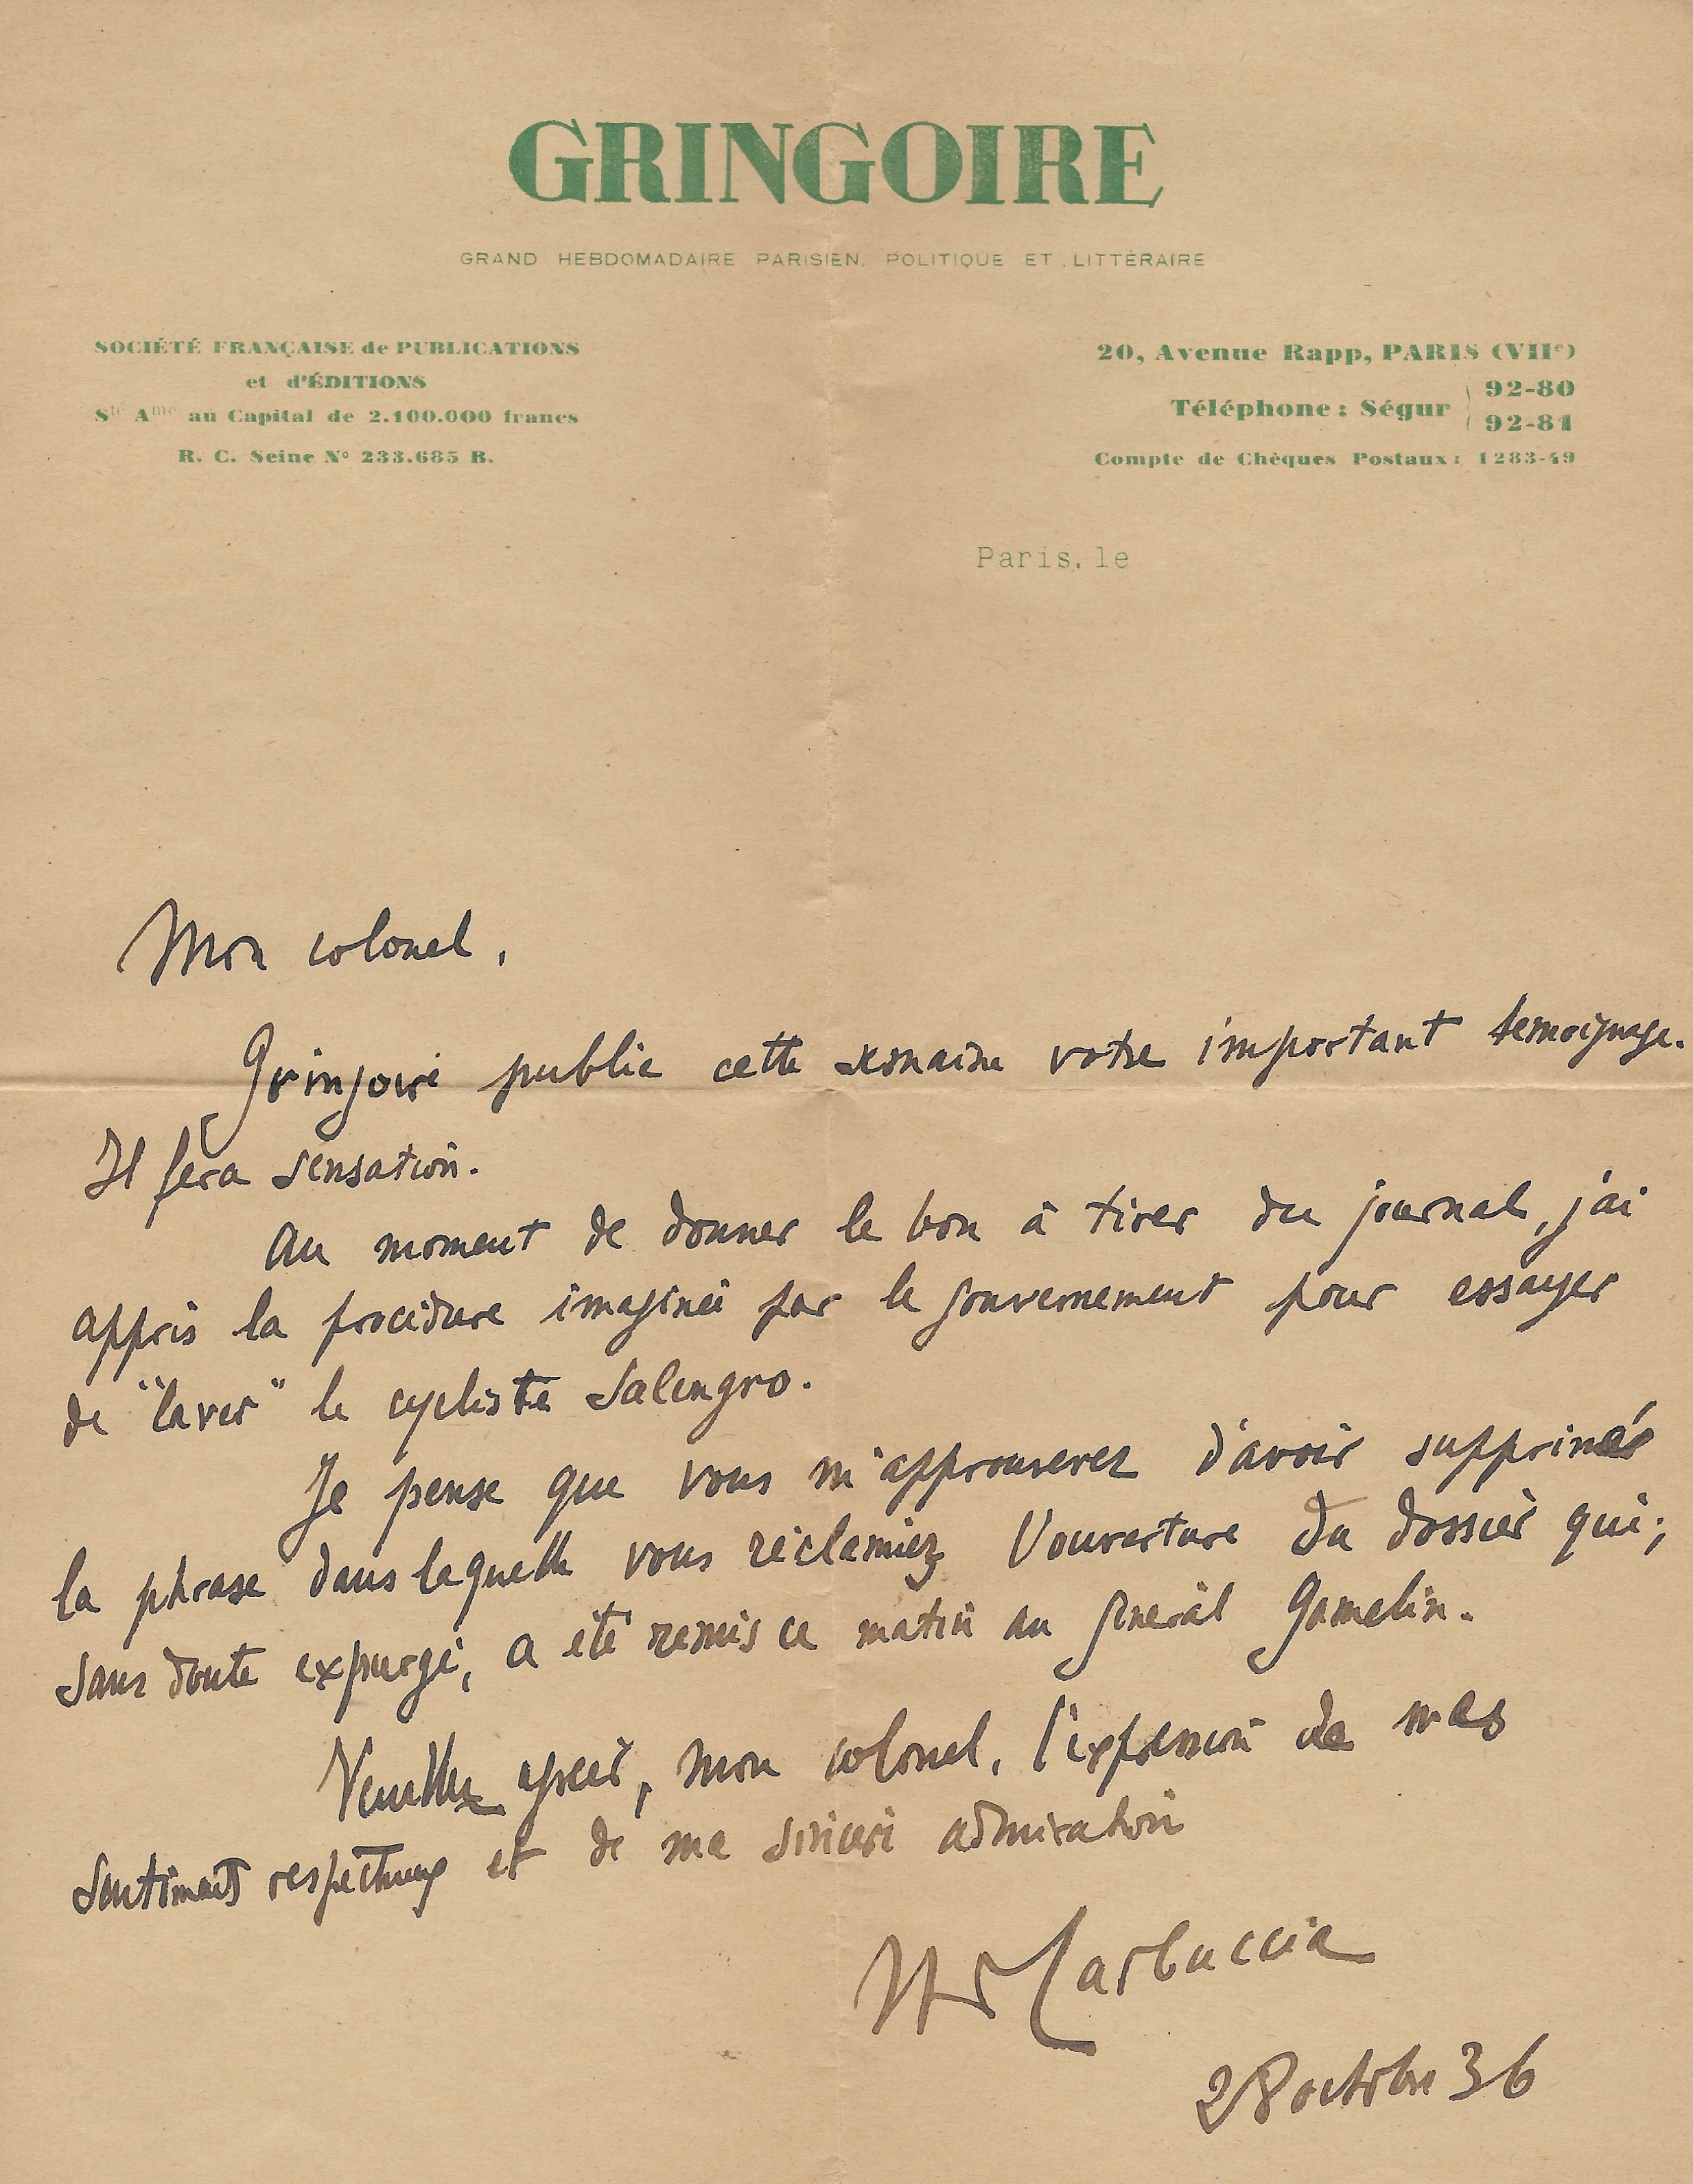 GRINGOIRE
GRAND HEBDOMADAIRE PARISIEN, POLITIQUE ET LITTÉRAIRE
SOCIÉTÉ FRANÇAISE de PUBLICATIONS
et d'ÉDITIONS
Sté Ame au Capital de 2.100.000 francs
R. C. Seine No 233.685 B.
20, Avenue Rapp, PARIS (VIIe)
Téléphone : Ségur 92-80
92-81
Compte de Chèques Postaux : 1283-49
Paris, le
Mon colonel,
Gringoire publie cette semaine votre important temoignage.
Il fera sensation.
Au moment de donner le bon à tirer du journal, j'ai
appris la procédure imaginée par le gouvernement pour essayer
de "laver" le cycliste Salengro.
Je pense que vous m'approuverez d'avoir supprimé
la phrase dans laquelle vous réclamiez l'ouverture du dossier qui,
sans doute expurgé, a été remis ce matin au général Gamelin.
Veuillez agréer, mon colonel, l'expression de mes
sentiments respectueux et de ma sincère admiration
H de Carbuccia
28 octobre 36